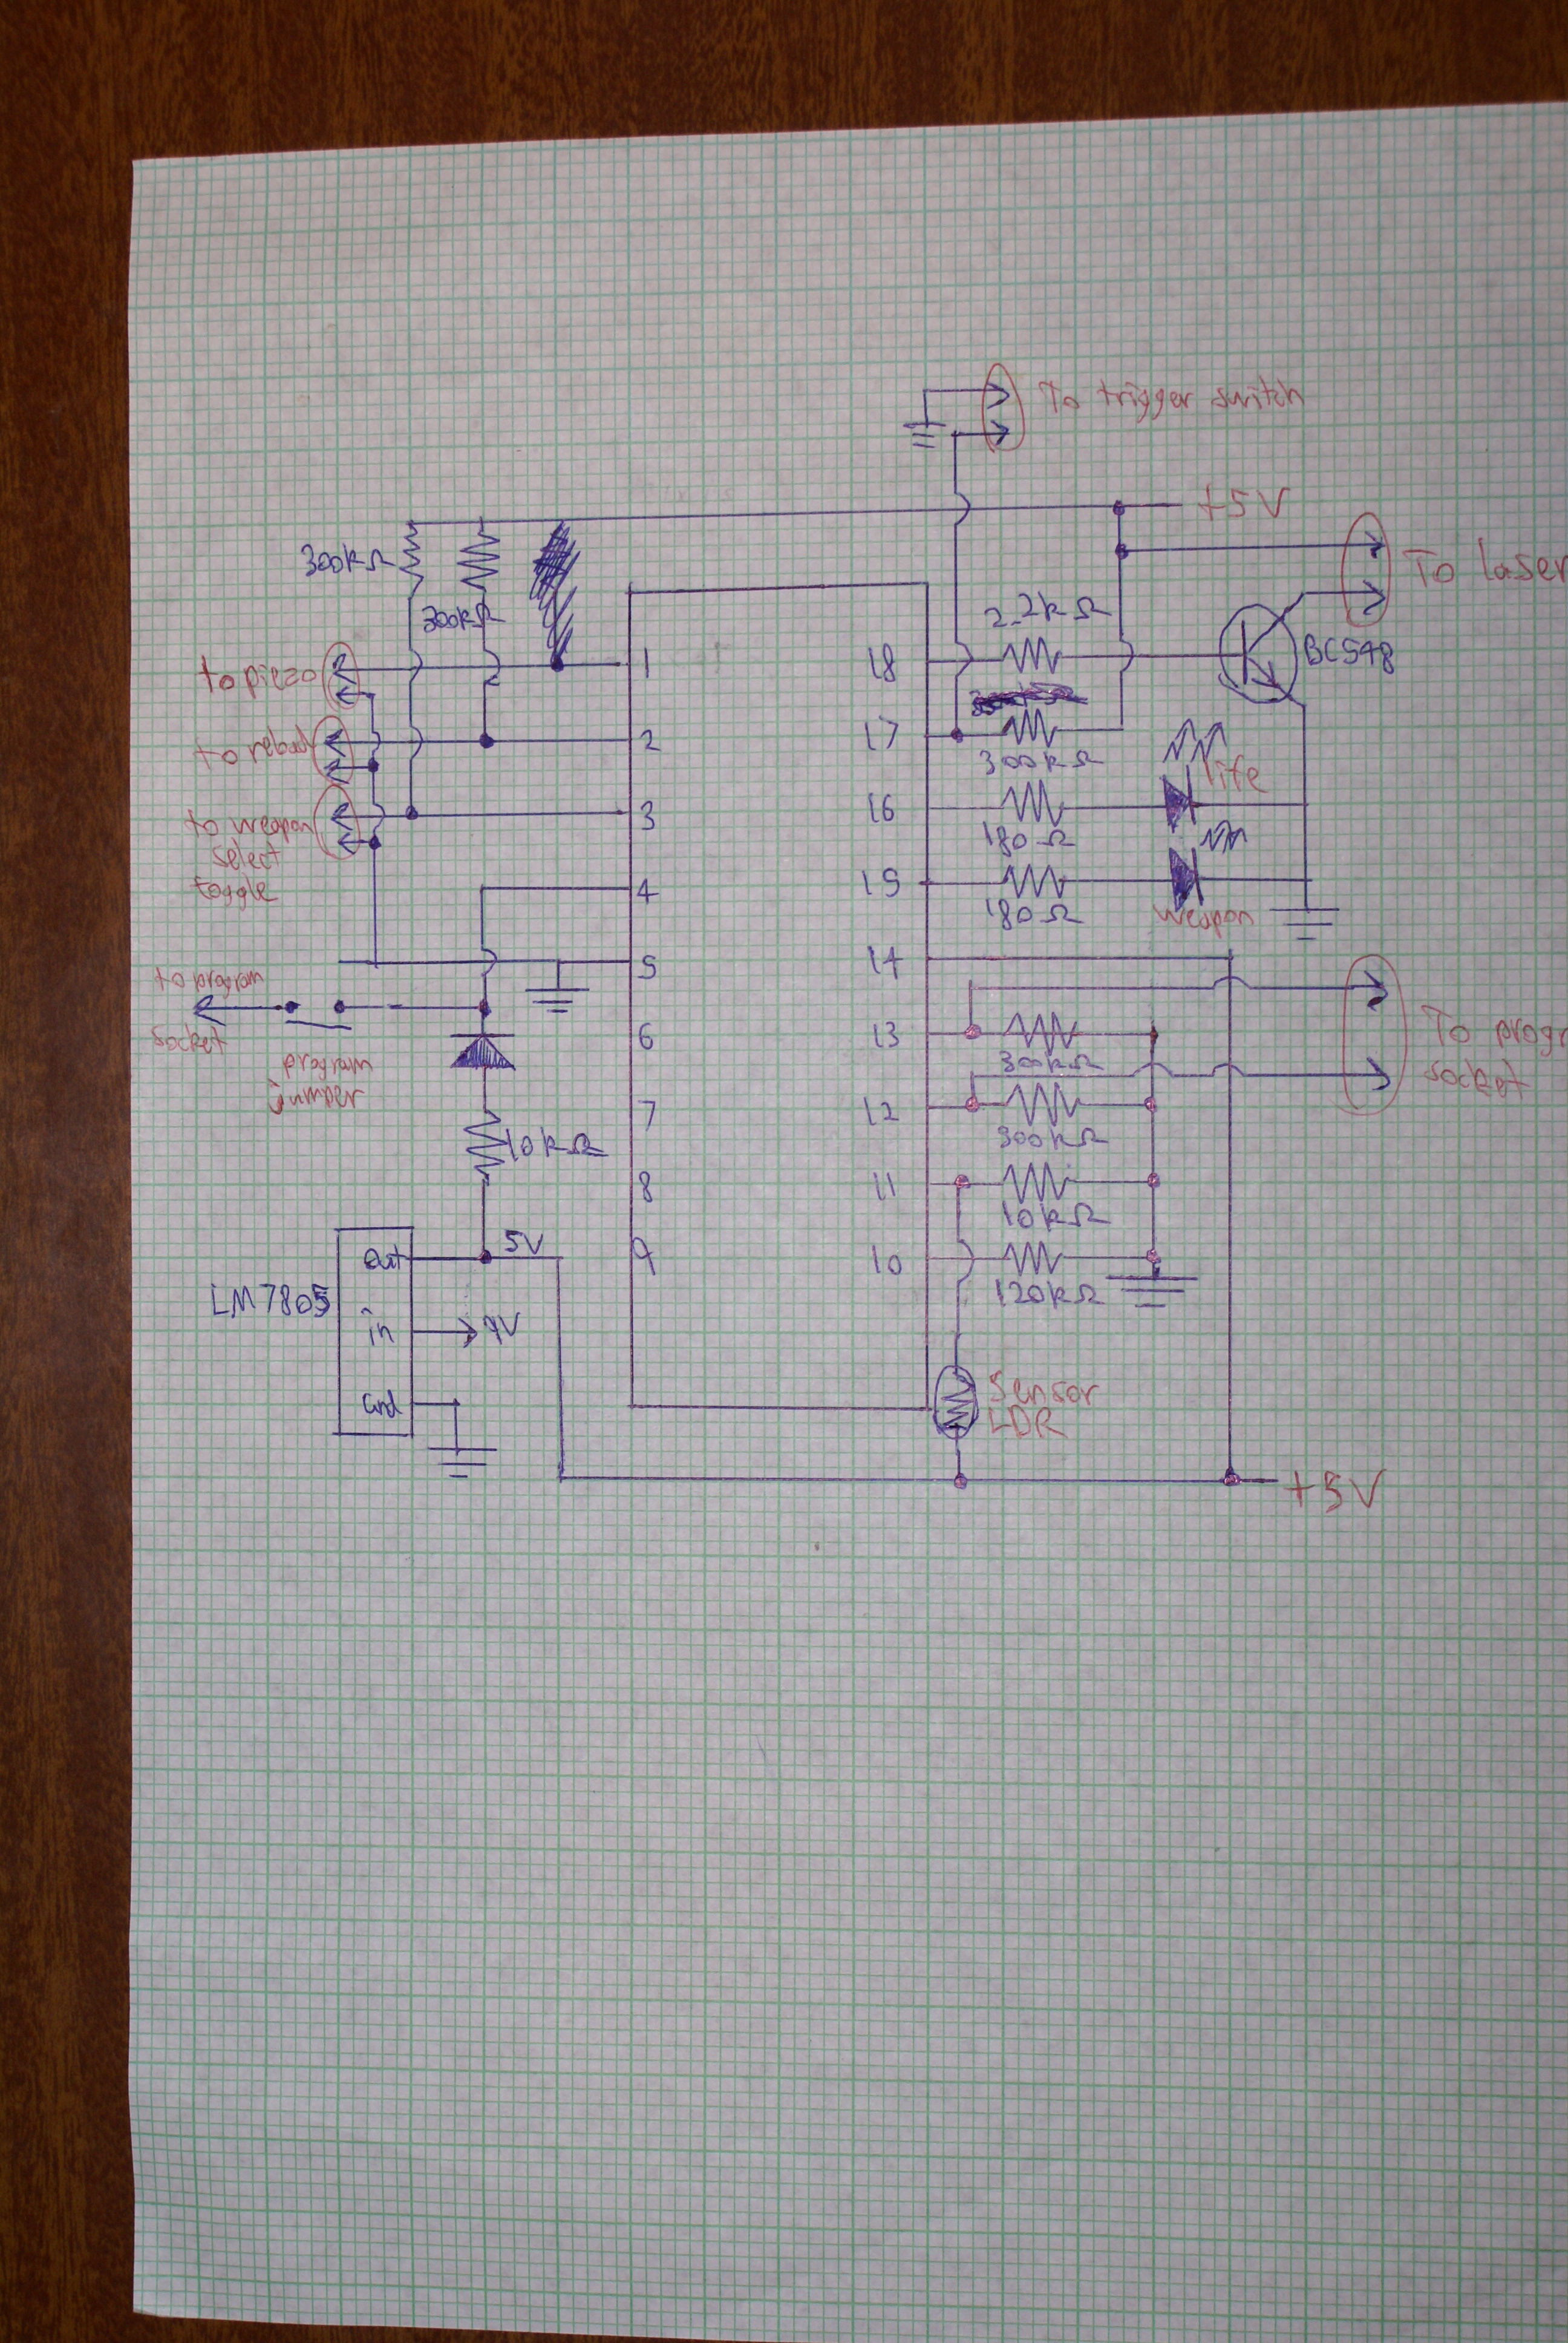 To trigger switch
+5V
300kΩ
To laser
300kΩ
2.2kΩ
BC548
to piezo
1
18
to reload
2
17
300kΩ
life
to weapon
select
toggle
3
16
180Ω
4
15
180Ω
weapon
to program
socket
5
14
program
jumper
6
13
300kΩ
To progr
socket
7
12
300kΩ
10kΩ
8
11
10kΩ
5V
9
10
120kΩ
LM7805
out
in
9V
Gnd
Sensor
LDR
+5V